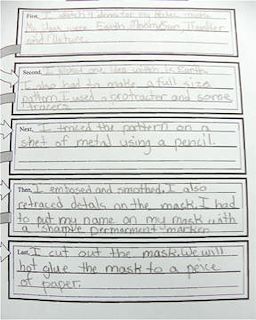 First, I sketch 4 ideas for my metal mask.
My ideas were Earth, Moon/Sun, Weather
and Nature.
Second, I picked one idea which is Earth.
I also had to make a full size
pattern I used a protractor and some
tracers
Next, I traced the pattern on a
shet of metal using a pencil.
Then, I embosed and smothed. I also
retraced detals on the mask. I had
to put my name on my mask with
a sharpie permerment marker.
Last, I cut out the mask. We will
hot glue the mask to a peice
of paper.